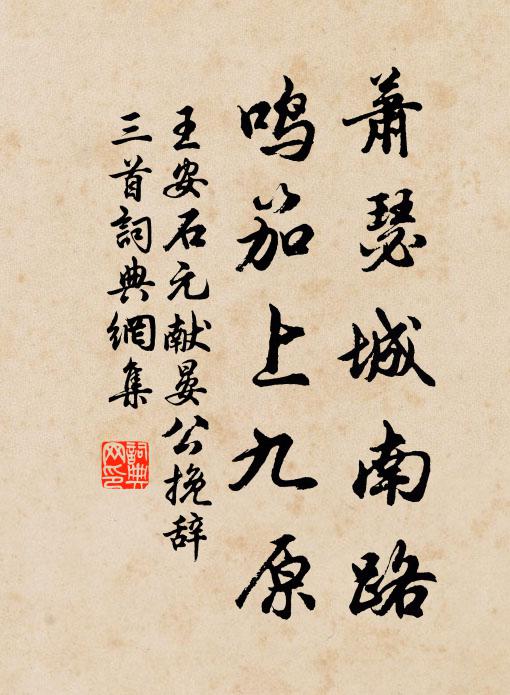 萧瑟城南路
鸣笳上九原
王安石元献晏公挽辞
三首詞典網集
詞典
网印